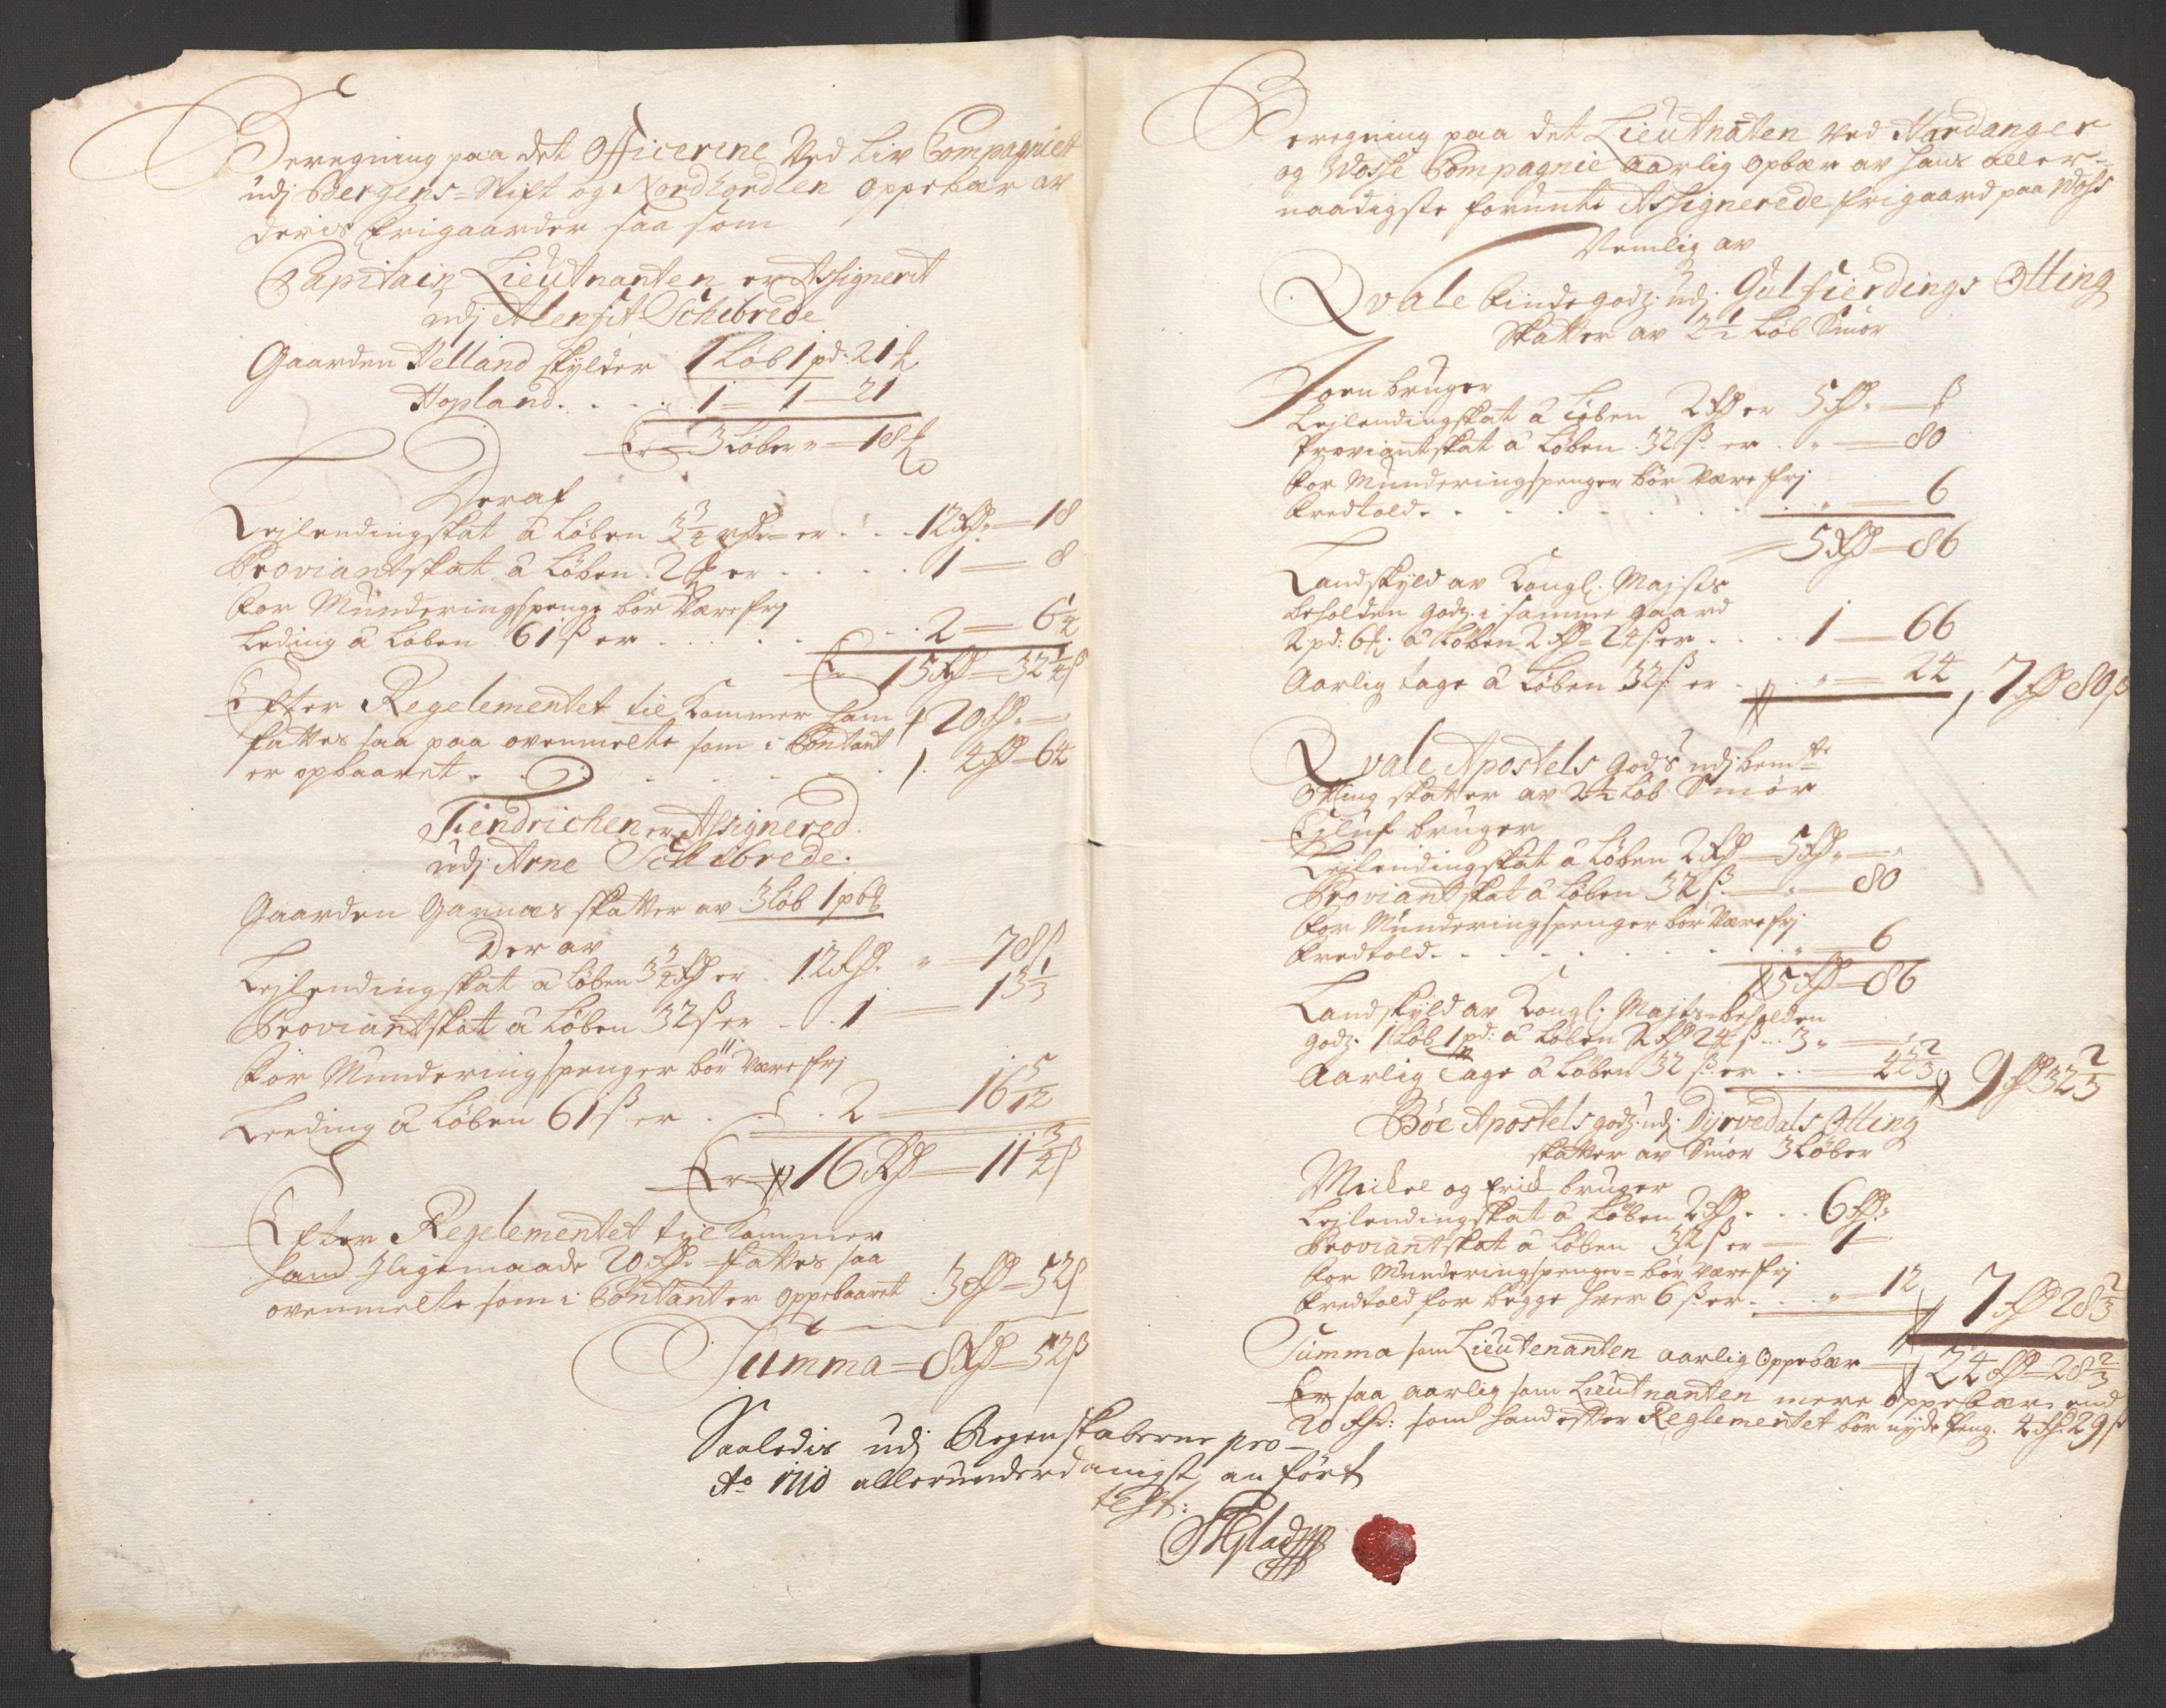 Beregning paa det Officerene Ved Liv Compagniet
udj Bergens=Stift og Nordhordlen oppebær av
deris frigaarder saa som
Capitain Lieutnanten er Assignerit
udj Alenfit Schibrede
Gaarden Helland skylder 1 Løb 1 pd: 21
Hopland . . . . 1 = 1 — 21
Er — 3 Løber " — 18
Deraf
Leylendingskat â Løben 3 3/4 = er . . . 12 — 18
Proviantskat â Løben . 2 er . . . . 1 — 8
For Münderingspenge bør Være frj
Leding â Løben 61 ß er . . . . 2 — 6 1/4
Er 15 — 32 1/4 ß
Efter Regelementet til Kommer ham 20
fattes saa paa ovenmelte som i Contant
er opbaaret . . . . 4 — 64
Fiendrichen er Assignered
udj Arne Schibrede .
Gaarden Garnæs skatter av 3 Løb 1 p 6
Der av
Leylendingskat â Løben 3 3/4 er 12 " — 78 ß
Proviantskat â Løben 32 ß er . . 1 — 13 1/3
For Münderingspenger bør Være frj
Leeding â Løben 61 ß er . . . 2 — 16 5/12
Er 16 — 11 3/4 ß
Efter Regelementet til Kommer
hand Ligemaade 20 fattes saa
ovenmelte som i Contant er oppebaaret 3 — 52 ß
Summa — 8 — 52 ß
Beregning paa det Lieutnâten Ved Hardanger
og Wosse Compagnie Aarlig opbær av hans aller=
naadigste forunte Assignerede frigaard paa Woss
Nemlig av
Qvale Bundegodz: udj. Gulfierdings Otting
Skatter av 2 1/2 Løb Smør
Joen bruger
Leylendingskat â Løben 2 er 5 — ß
Proviantskat â Løben . 32 ß er . " — 80
For Münderingspenger bør Være frj
Fredtold . . . . . . . " — 6
5 — 86
Landskyld av Kongl: Majsts
beholden godz: i samme gaard
2 pd: 6 : â Løben 2 24 ß er . . . 1 — 66
Aarlig tage â Løben 32 ß er . . " — 24 7 80 ß
Qvale Apostels Gods udj bemte
Otting skatter av 2 1/2 Løb Smør
Eluf bruger
Leylendingskat â Løben 2 — 5 " — "
Proviantskat â Løben 32 ß . — " — 80
For Münderingspenger bør Være frj
Fredtold . . . . . . . " — 6
5 — 86
Landskyld av Kongl: Majsts beholden
godz: 1 Løb 1 pd: â Løben 2 24 ß . . 3 " — "
Aarlig Tage â Løben 32 ß er . . — 42 2/3 9 32 2/3
Bøe Apostels godz: udj. Dyrvedals Otting
skatter av Smør 3 Løber
Mickel og Erick bruger
Leylendingskat â Løben 2 . . . 6
Proviantskat â Løben 32 ß er — 1 —
For Münderingspenger bør Være frj
Fredtold for begge hver 6 ß er . . . " — 12 7 28 2/3
Summa som Lieutenanten aarlig Oppebær — 24 — 28 2/3
Er saa aarlig som Lieutnanten mere oppebær end
20 : som hand efter Reglementet bør nyde Peng. 4 29 ß
Saaledis udj Regenskaberne pro
Ao 1710 allerunderdanigst anført
test: